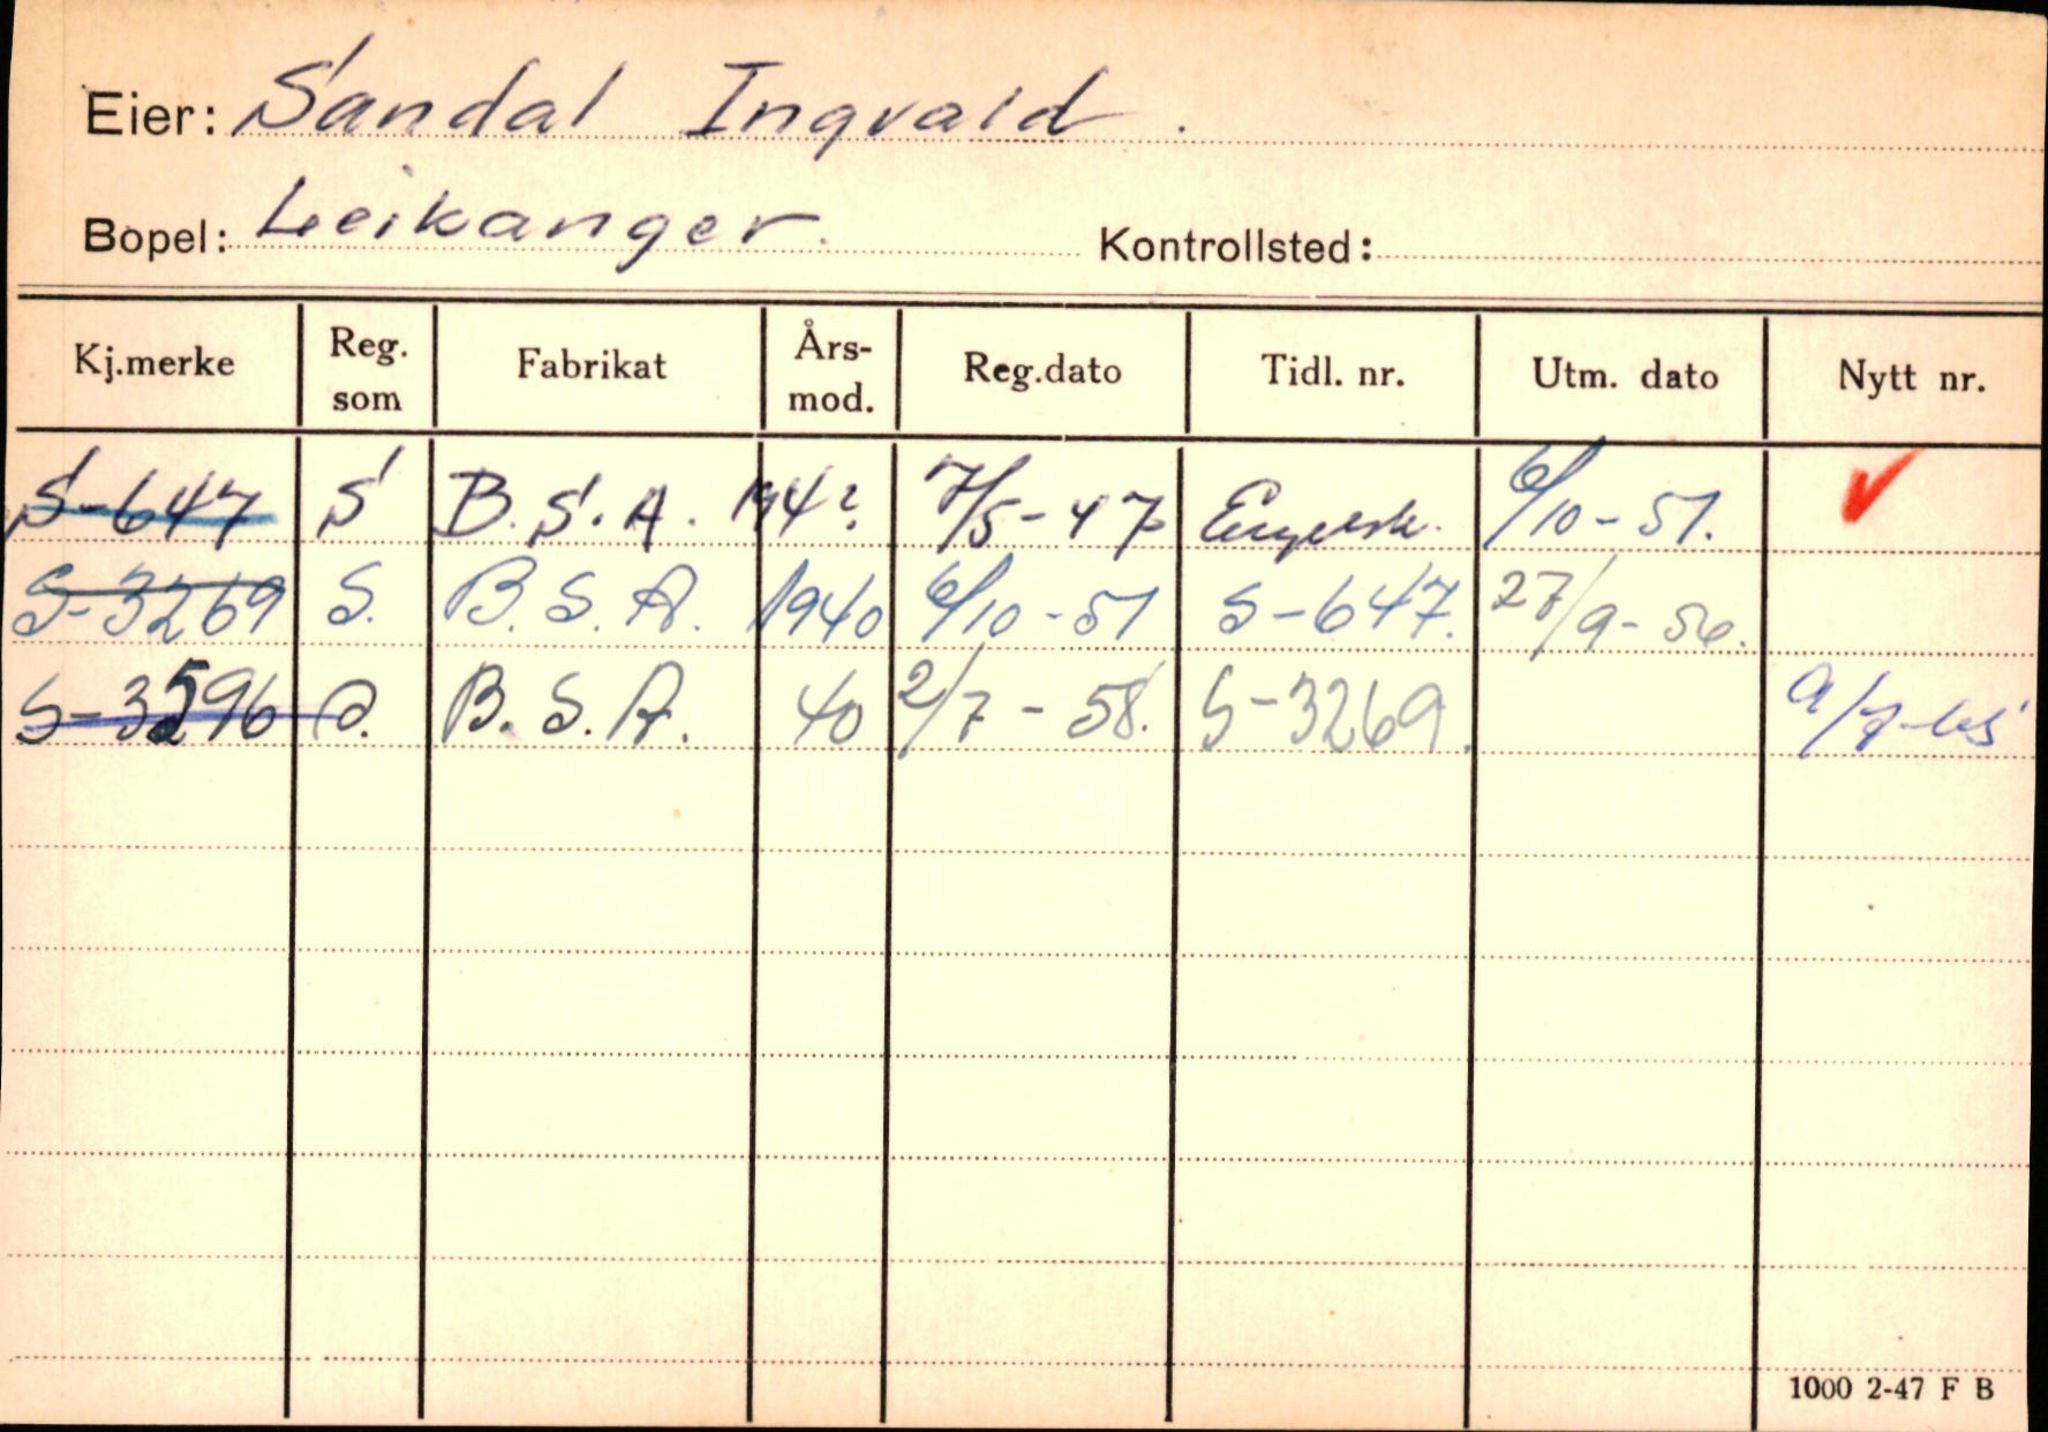 Eier: Sandal Ingvald.
Bopel: Leikanger. Kontrollsted:
Kj.merke Reg. som Fabrikat Års-mod. Reg.dato Tidl. nr. Utm. dato Nytt nr.
S-647 S B.S.A. 194? 7/5-47 Engelsk. 6/10-51. ✓
S-3269 S. B.S.A. 1940 6/10-51 S-647. 27/9-56.
S-3596 S. B.S.A. 40 2/7-58. S-3269.
1000 2-47 F B